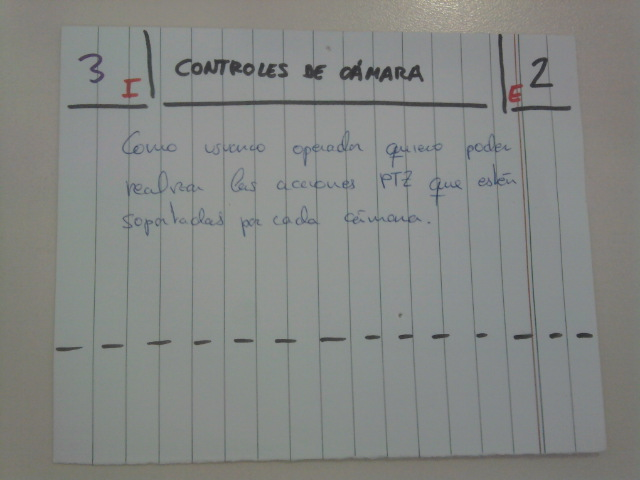 3 I CONTROLES DE CÁMARA E 2
Como usuario operador quiero poder
realizar las acciones PTZ que estén
soportadas por cada cámara.